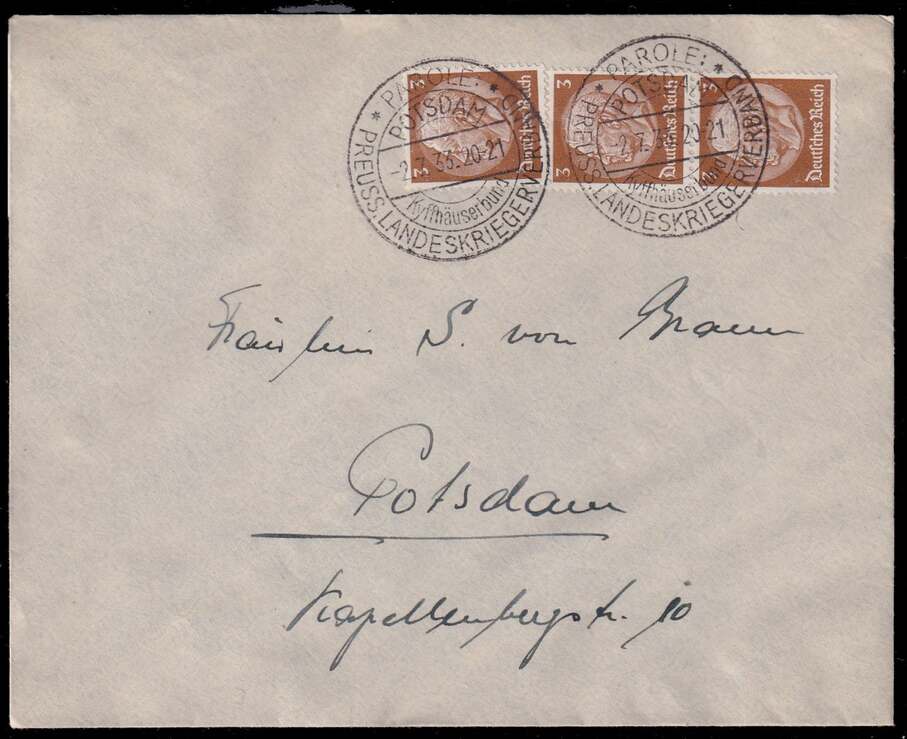 * PAROLE: *
POTSDAM
-2.7.33.20-21
Kyffhäuserbund
PREUSS. LANDESKRIEGERVERBAND
* PAROLE: *
POTSDAM
-2.7.33.20-21
Kyffhäuserbund
PREUSS. LANDESKRIEGERVERBAND
3 Deutsches Reich 3
3 Deutsches Reich
3 Deutsches Reich
Fräulein S. von Braun
Potsdam
Kapellenbergstr. 10